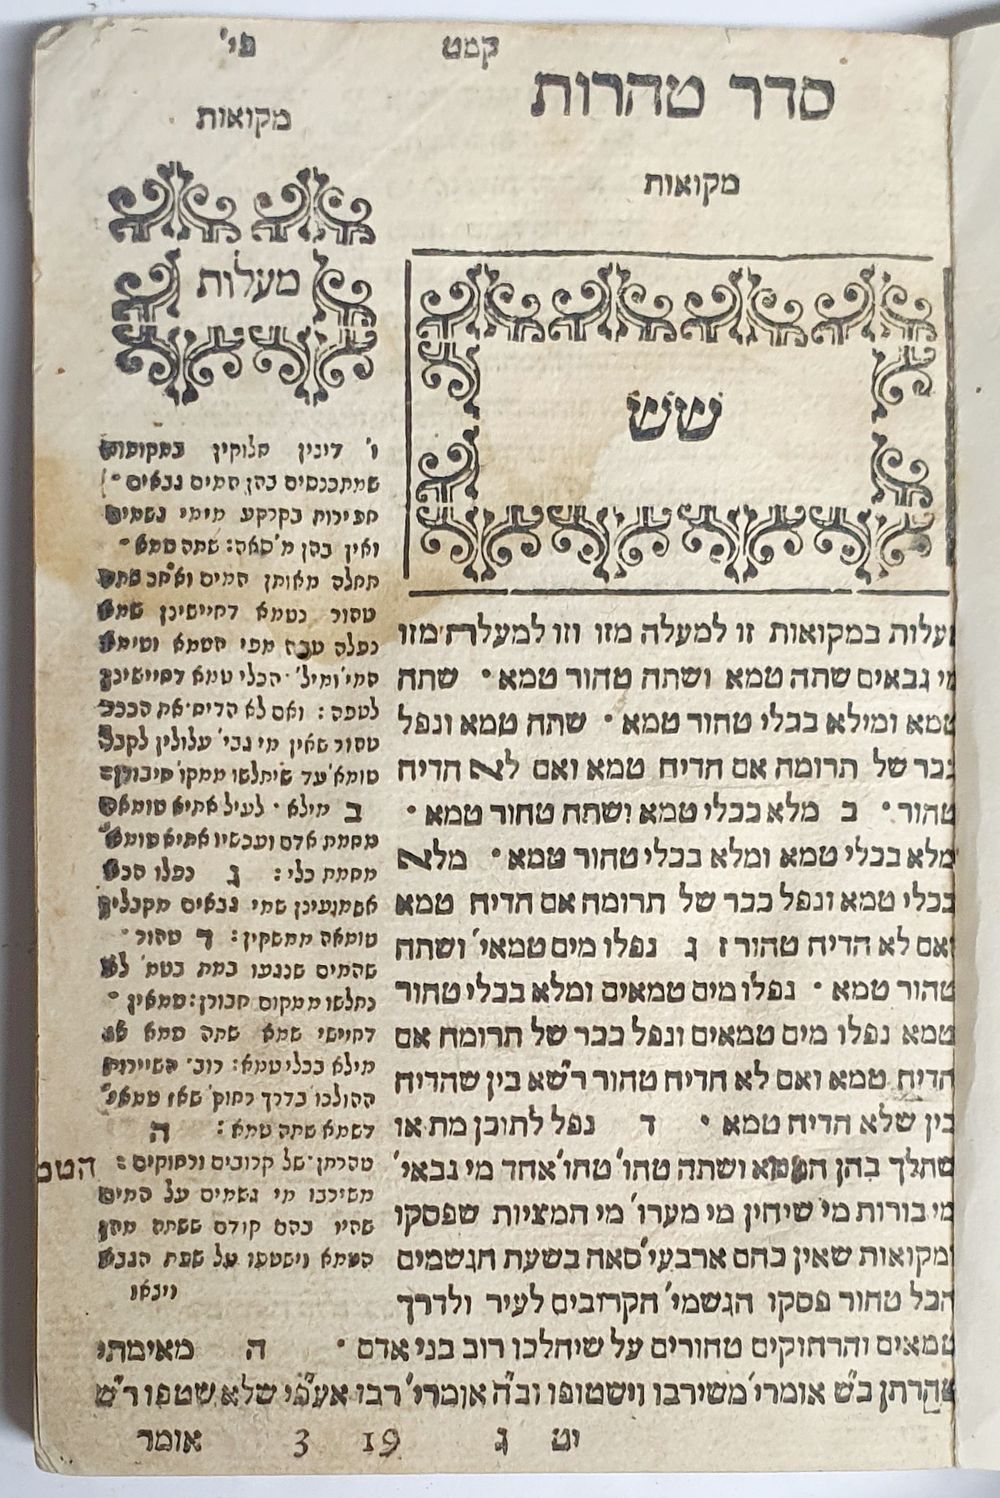 קמט פי'
סדר טהרות
מקואות
שש
מעלות במקואות זו למעלה מזו וזו למעלה מזו
מי גבאים שתה טמא ושתה טהור טמא · שתה
טמא ומילא בכלי טהור טמא · שתה טמא ונפל
ככר של תרומה אם הדיח טמא ואם לא הדיח
טהור · ב מלא בכלי טמא ושתה טהור טמא ·
מלא בכלי טמא ומלא בכלי טהור טמא · מלא
בכלי טמא ונפל ככר של תרומה אם הדיח טמא
ואם לא הדיח טהור ז ג נפלו מים טמאי' ושתה
טהור טמא · נפלו מים טמאים ומלא בכלי טהור
טמא נפלו מים טמאים ונפל ככר של תרומה אם
הדיח טמא ואם לא הדיח טהור ר"שא בין שהדיח
בין שלא הדיח טמא · ד נפל לתוכן מת או
שהלך בהן הטמא ושתה טהו' טהו' אחד מי גבאי'
מי בורות מי שיחין מי מערו' מי תמציות שפסקו
ומקואות שאין בהם ארבעי' סאה בשעת הגשמים
הכל טהור פסקו הגשמי' הקרובים לעיר ולדרך
טמאים והרחוקים טהורים על שיהלכו רוב בני אדם · ה מאימתי
טהרתן ב"ש אומרי' משירבו וישטופו וב"ה אומרי' רבו אע"פי שלא שטפו ר"ש
מקואות
מעלות
ו' דינין חלוקין במקומות
שמתכנסים בהן המים גבאים ·
חפירות בקרקע מימי גשמים
ואין בהן מ' סאה: שתה טמא ·
תחלה מאותן המים ואח"כ שתה
טהור נטמא דחיישינן שמא
נפלה טפה מפי הטמא וטימא
המי' ומיל' · הכלי טמא דחיישינן
לטפה: ואם לא הדיח · את הככר
טהור שאין מי גבי' עלולין לקבל
טומא' עד שיתלשו ממקו' חיבורן:
ב מילא · לעיל אתיא טומאה
מחמת אדם ועכשיו אתיא טומא'
מחמת כלי: ג נפלו הכא
אשמעינן שמי גבאים מקבלין
טומאה ממשקין: ד טהור ·
שהמים שנגעו במת בטמ' לא
נתלשו ממקום חבורן: טמאין ·
דחיישי שמא שתה טמא או
מילא בכלי טמא: רוב · השיירות
ההולכו בדרך רחוק' שאז טמאי'
דשמא שתה טמא: ה
טהרתן · של קרובים ורחוקים:
משירבו מי גשמים על המים
שהיו בהם קודם ששתה מהן
הטמא וישטפו על שפת הגבא
ויצאו
הטמ
יט ג 19 3 אומר